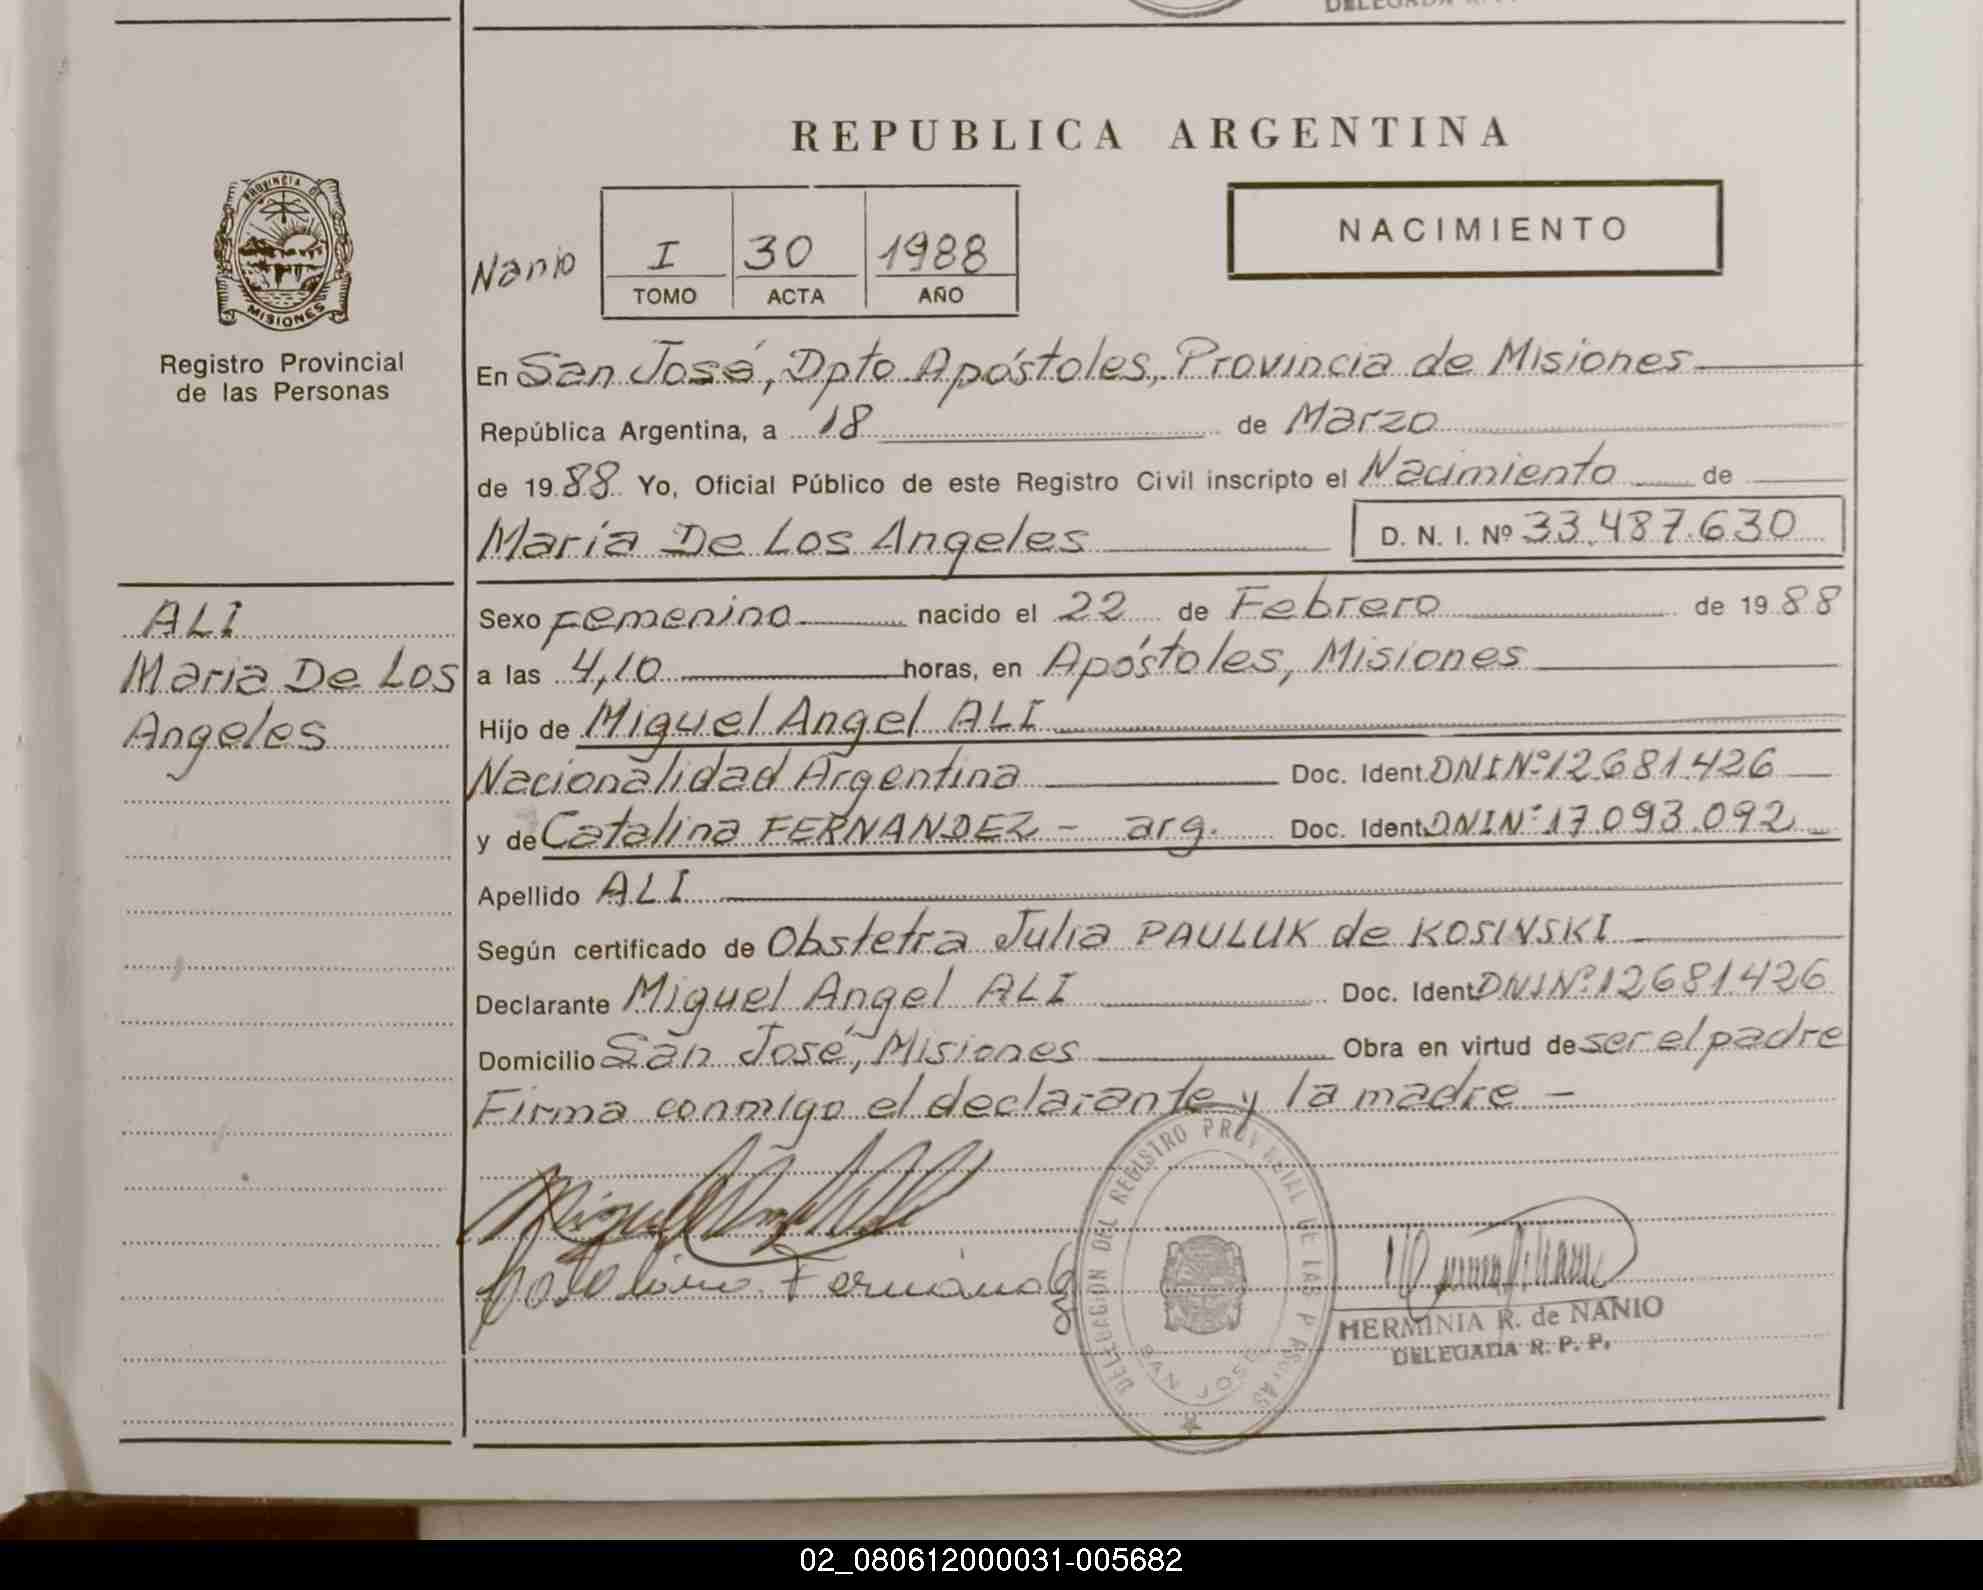 DELEGADA R.
REPUBLICA ARGENTINA
NACIMIENTO
Nanio
I 30 1988
TOMO ACTA AÑO
PROVINCIA DE
MISIONES
Registro Provincial
de las Personas
En San José, Dpto Apóstoles, Provincia de Misiones
República Argentina, a 18 de Marzo
de 1988 Yo, Oficial Público de este Registro Civil inscripto el Nacimiento de
María De Los Angeles D. N. I. Nº 33.487.630
ALI
Maria De Los
Angeles
Sexo Femenino nacido el 22 de Febrero de 1988
a las 4,10 horas, en Apóstoles, Misiones
Hijo de Miguel Angel ALI
Nacionalidad Argentina Doc. Ident. DNI Nº 12681426
y de Catalina FERNANDEZ - arg. Doc. Ident. DNI Nº 17.093.092
Apellido ALI
Según certificado de Obstetra Julia PAULUK de KOSINSKI
Declarante Miguel Angel ALI Doc. Ident. DNI Nº 12681426
Domicilio San José, Misiones Obra en virtud de ser el padre
Firma conmigo el declarante y la madre -
Miguel
Catalina Fernández
DELEGACION DEL REGISTRO PROVINCIAL DE LAS PERSONAS
SAN JOSE
HERMINIA R. de NANIO
DELEGADA R. P. P.
02_080612000031-005682